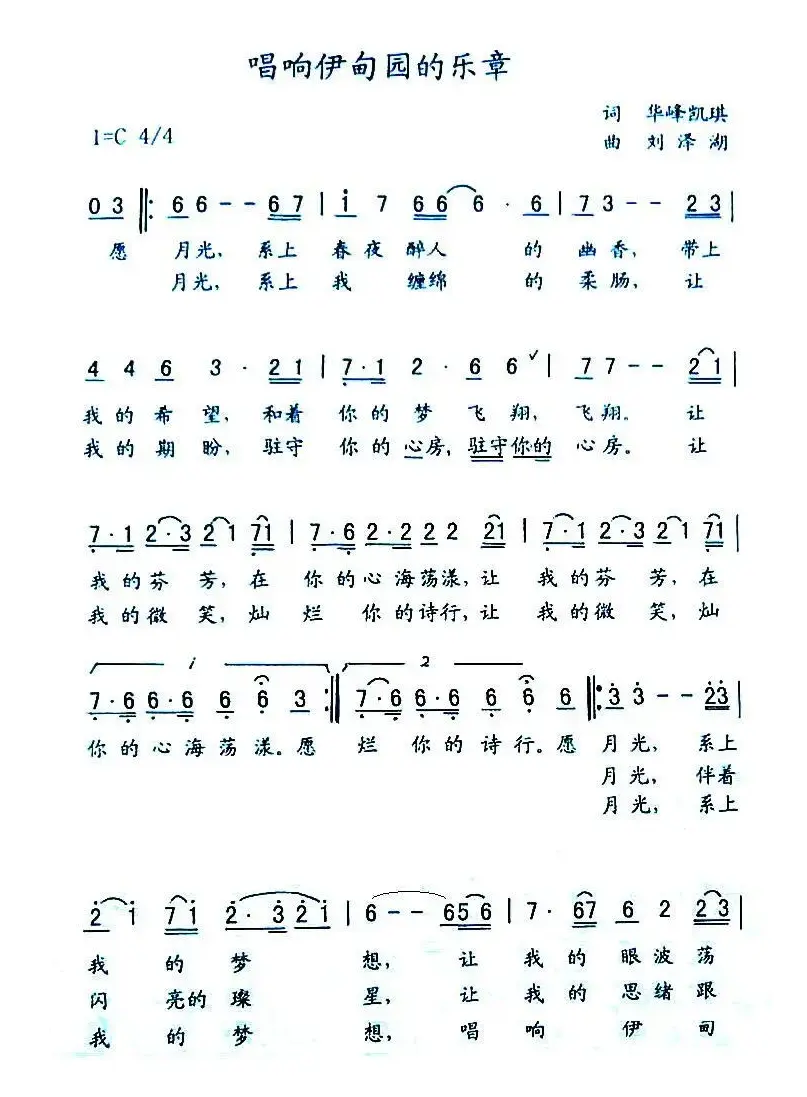 唱响伊甸园的乐章
词 华峰凯琪
1=C 4/4
曲 刘泽湖
0 3 ‖: 6 6 - - 6 7 | i 7 6 6 6 · 6 | 7 3 - - 2 3 |
愿 月光, 系上 春夜醉人 的 幽香, 带上
月光, 系上 我 缠绵 的 柔肠, 让
4 4 6 3 · 2 1 | 7 · 1 2 · 6 6 ∨ | 7 7 - - 2 1 |
我的希望, 和着 你的梦 飞翔, 飞翔。 让
我的期盼, 驻守 你的心房, 驻守你的 心房。 让
7 · 1 2 · 3 2 1 7 1 | 7 · 6 2 · 2 2 2 2 1 | 7 · 1 2 · 3 2 1 7 1 |
我的芬芳, 在 你的心海荡漾, 让 我的芬芳, 在
我的微笑, 灿烂 你的诗行, 让 我的微笑, 灿
1 2
7 · 6 6 · 6 6 6 3 :‖ 7 · 6 6 · 6 6 6 6 ‖: 3 3 - - 2 3 |
你的心海荡漾。愿 烂 你的诗行。愿 月光, 系上
月光, 伴着
月光, 系上
2 i 7 i 2 · 3 2 i | 6 - - 6 5 6 | 7 · 6 7 6 2 2 3 |
我 的梦 想, 让 我的眼波荡
闪 亮的璨 星, 让 我的思绪跟
我 的梦 想, 唱 响 伊 甸